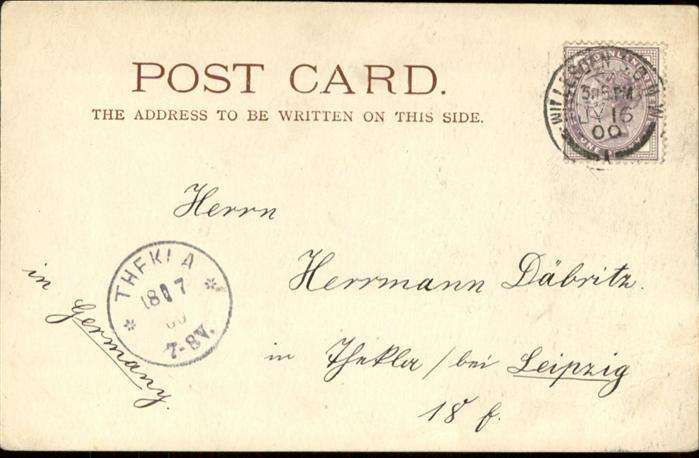 POST CARD.
THE ADDRESS TO BE WRITTEN ON THIS SIDE.
WILLESDEN N.W.
16
00
Herrn
Herrmann Däbritz.
in Thekla / bei Leipzig
18 f.
in Germany.
THEKLA
18 7
00
7-8V.